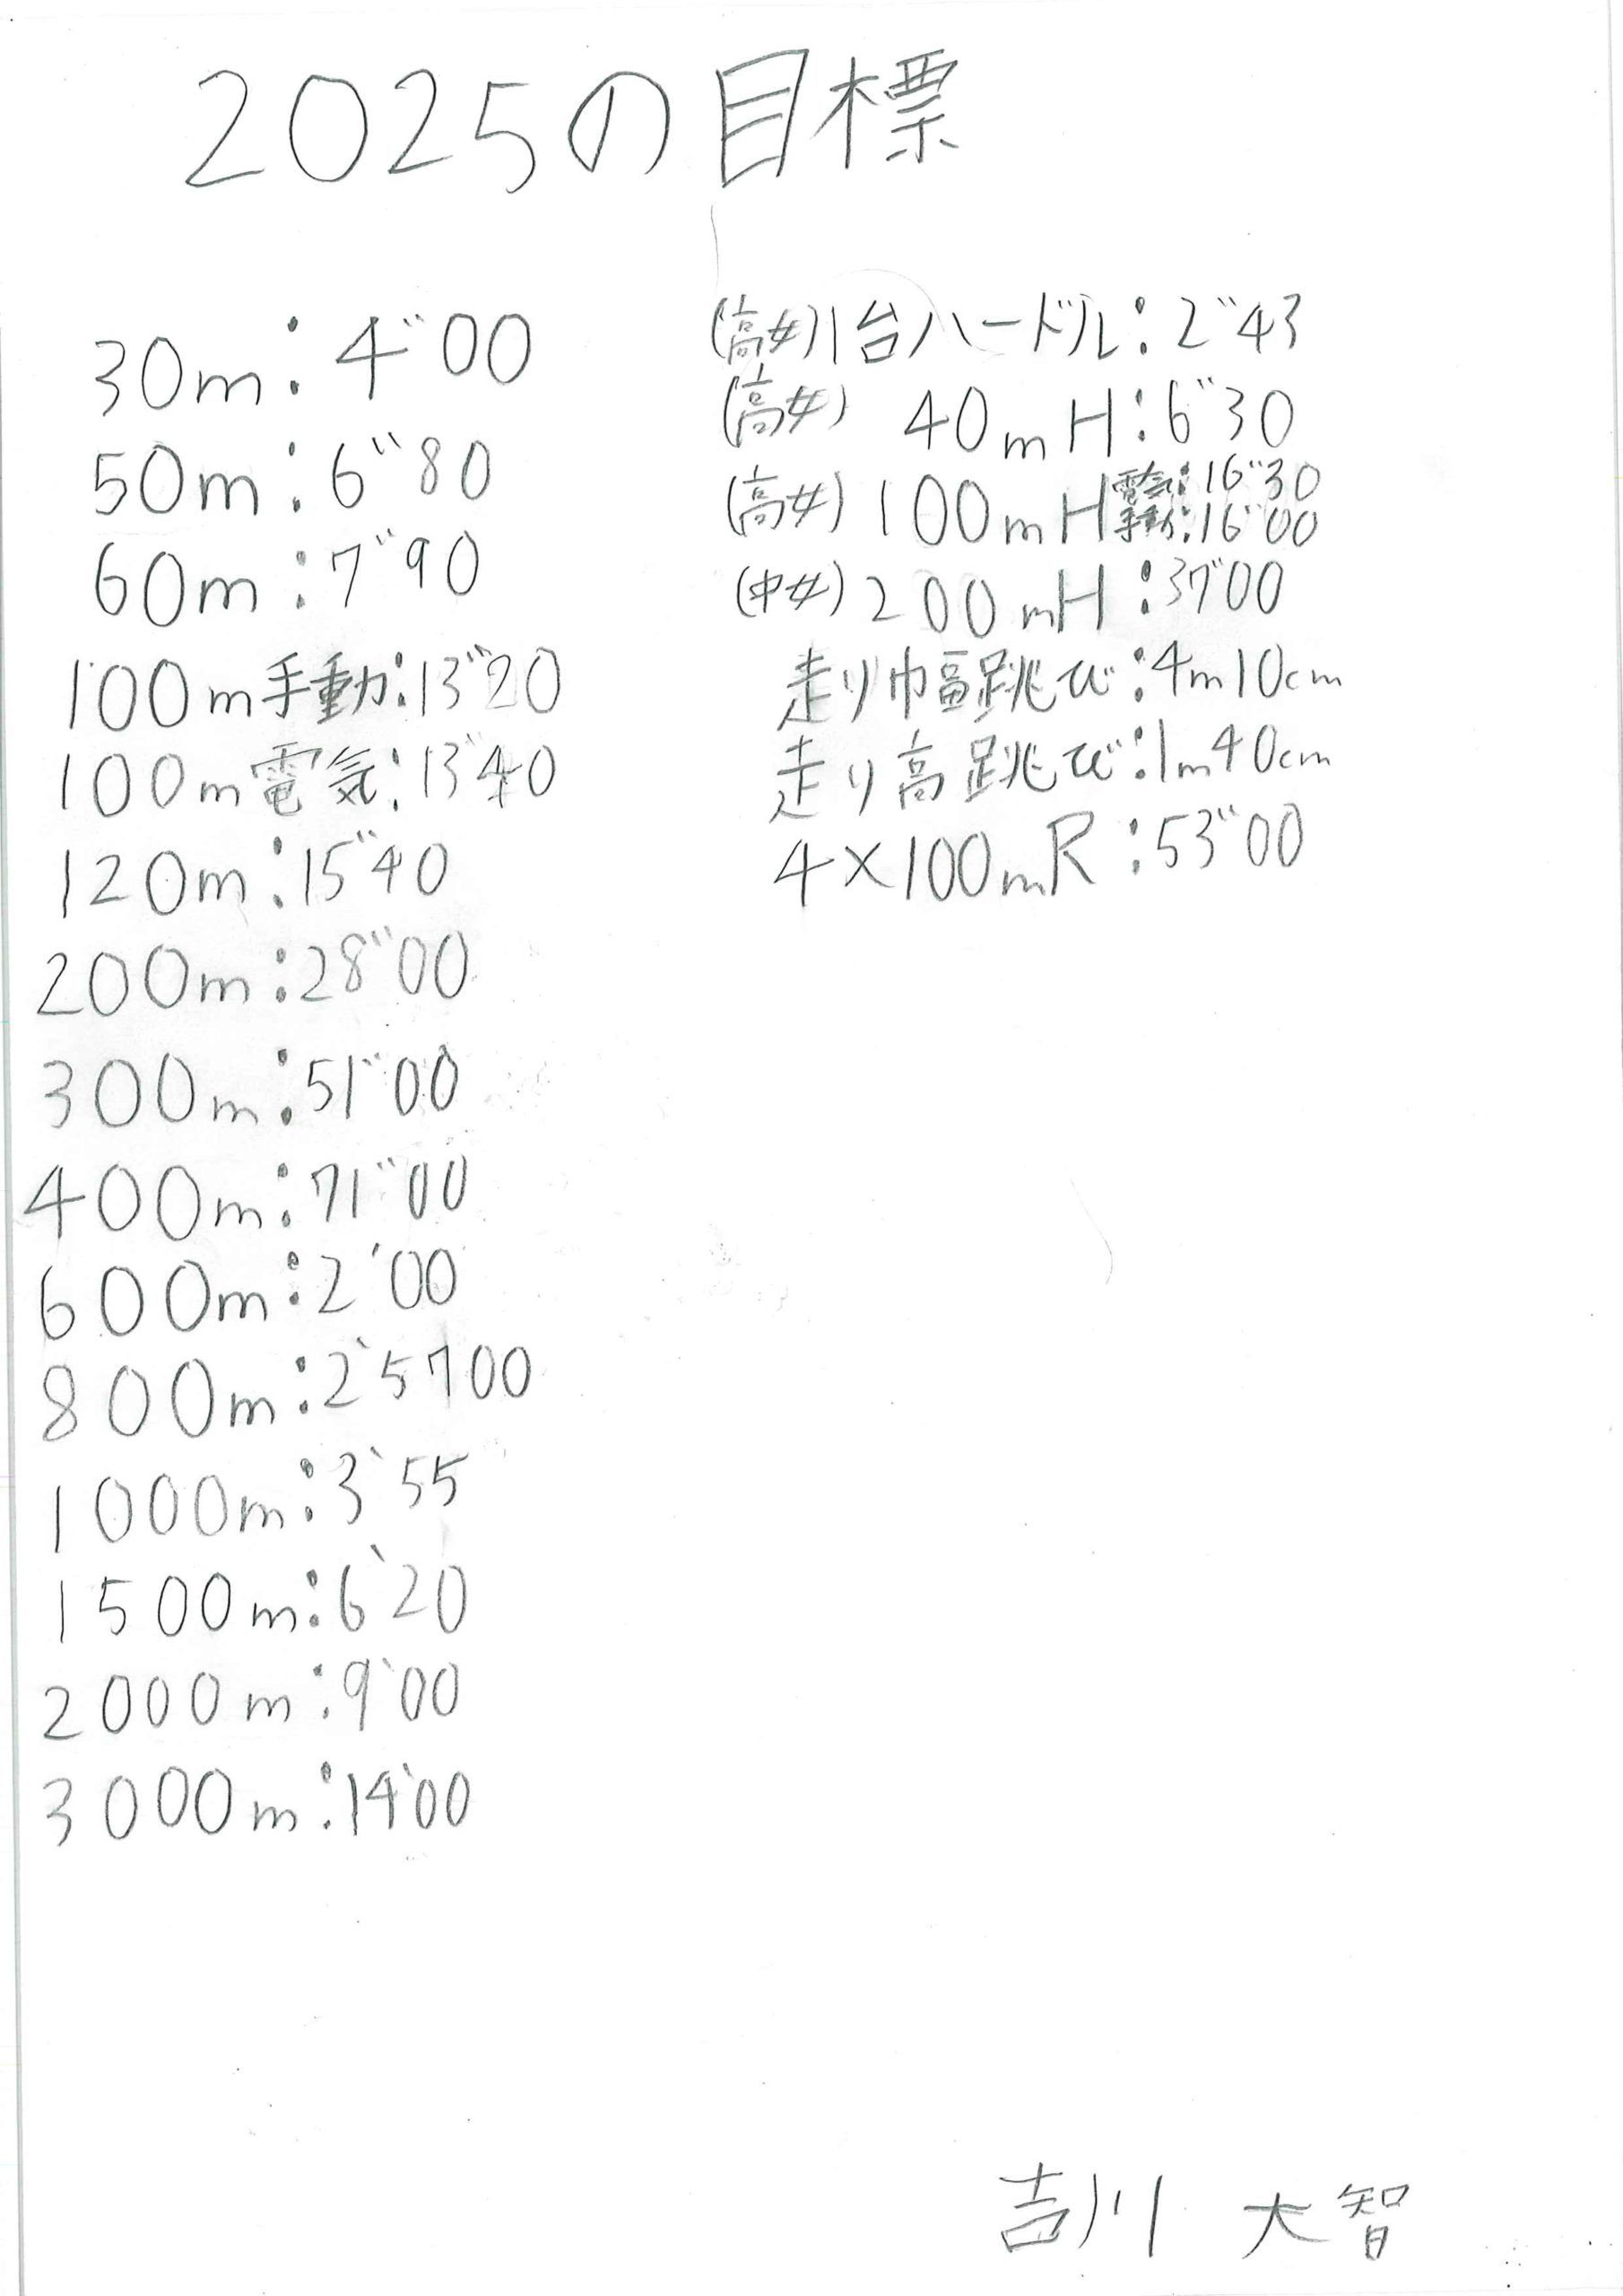 2025の目標
30m:4"00
50m:6"80
60m:7"90
100m手動:13"20
100m電気:13"40
120m:15"40
200m:28"00
300m:51"00
400m:71"00
600m:2'00
800m:2'57"00
1000m:3'55
1500m:6'20
2000m:9'00
3000m:14'00
(高女)1台ハードル:2"43
(高女) 40mH:6"30
(高女) 100mH電気:16"30
手動:16"00
(中女)200mH:37"00
走り巾幅跳び:4m10cm
走り高跳び:1m40cm
4×100mR:53"00
吉川 大智